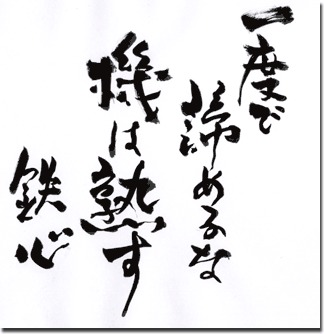 一度で
諦めるな
機は熟す
鉄心